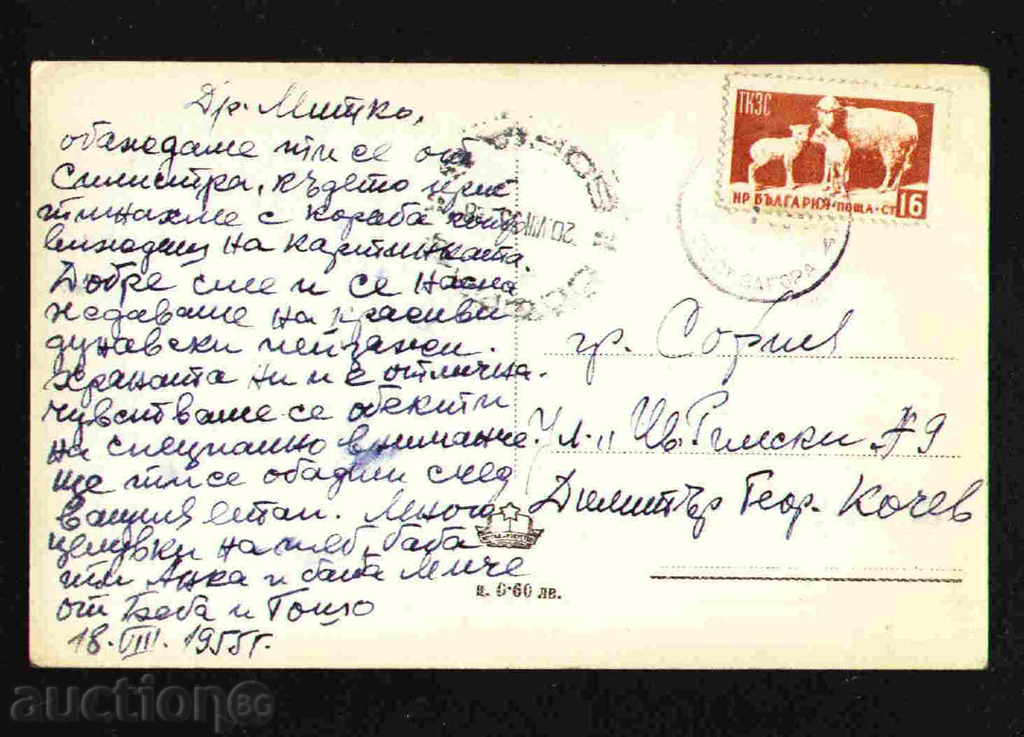 Др. Митко,
обаждаме ти се от
Силистра, където прис
тигнахме с кораба който
виждаш на картинката.
Добре сме и се насла
ждаваме на красиви
дунавски пейзажи.
Храната ни и е отлична.
чувстваме се обекти
на специално внимание.
Ще ти се обадим след
вашия етап. Много
целувки на теб, баба
ти Анка и баба Миче
от Беба и Гошо
18.VIII.1955г.
ТКЗС
НР БЪЛГАРИЯ·ПОЩА·СТ 16
20.VIII
ЗАГОРА
гр. София
Ул. "Ив. Римски №9
Димитър Геор. Кочев
ц. 0·60 лв.
auctionBG